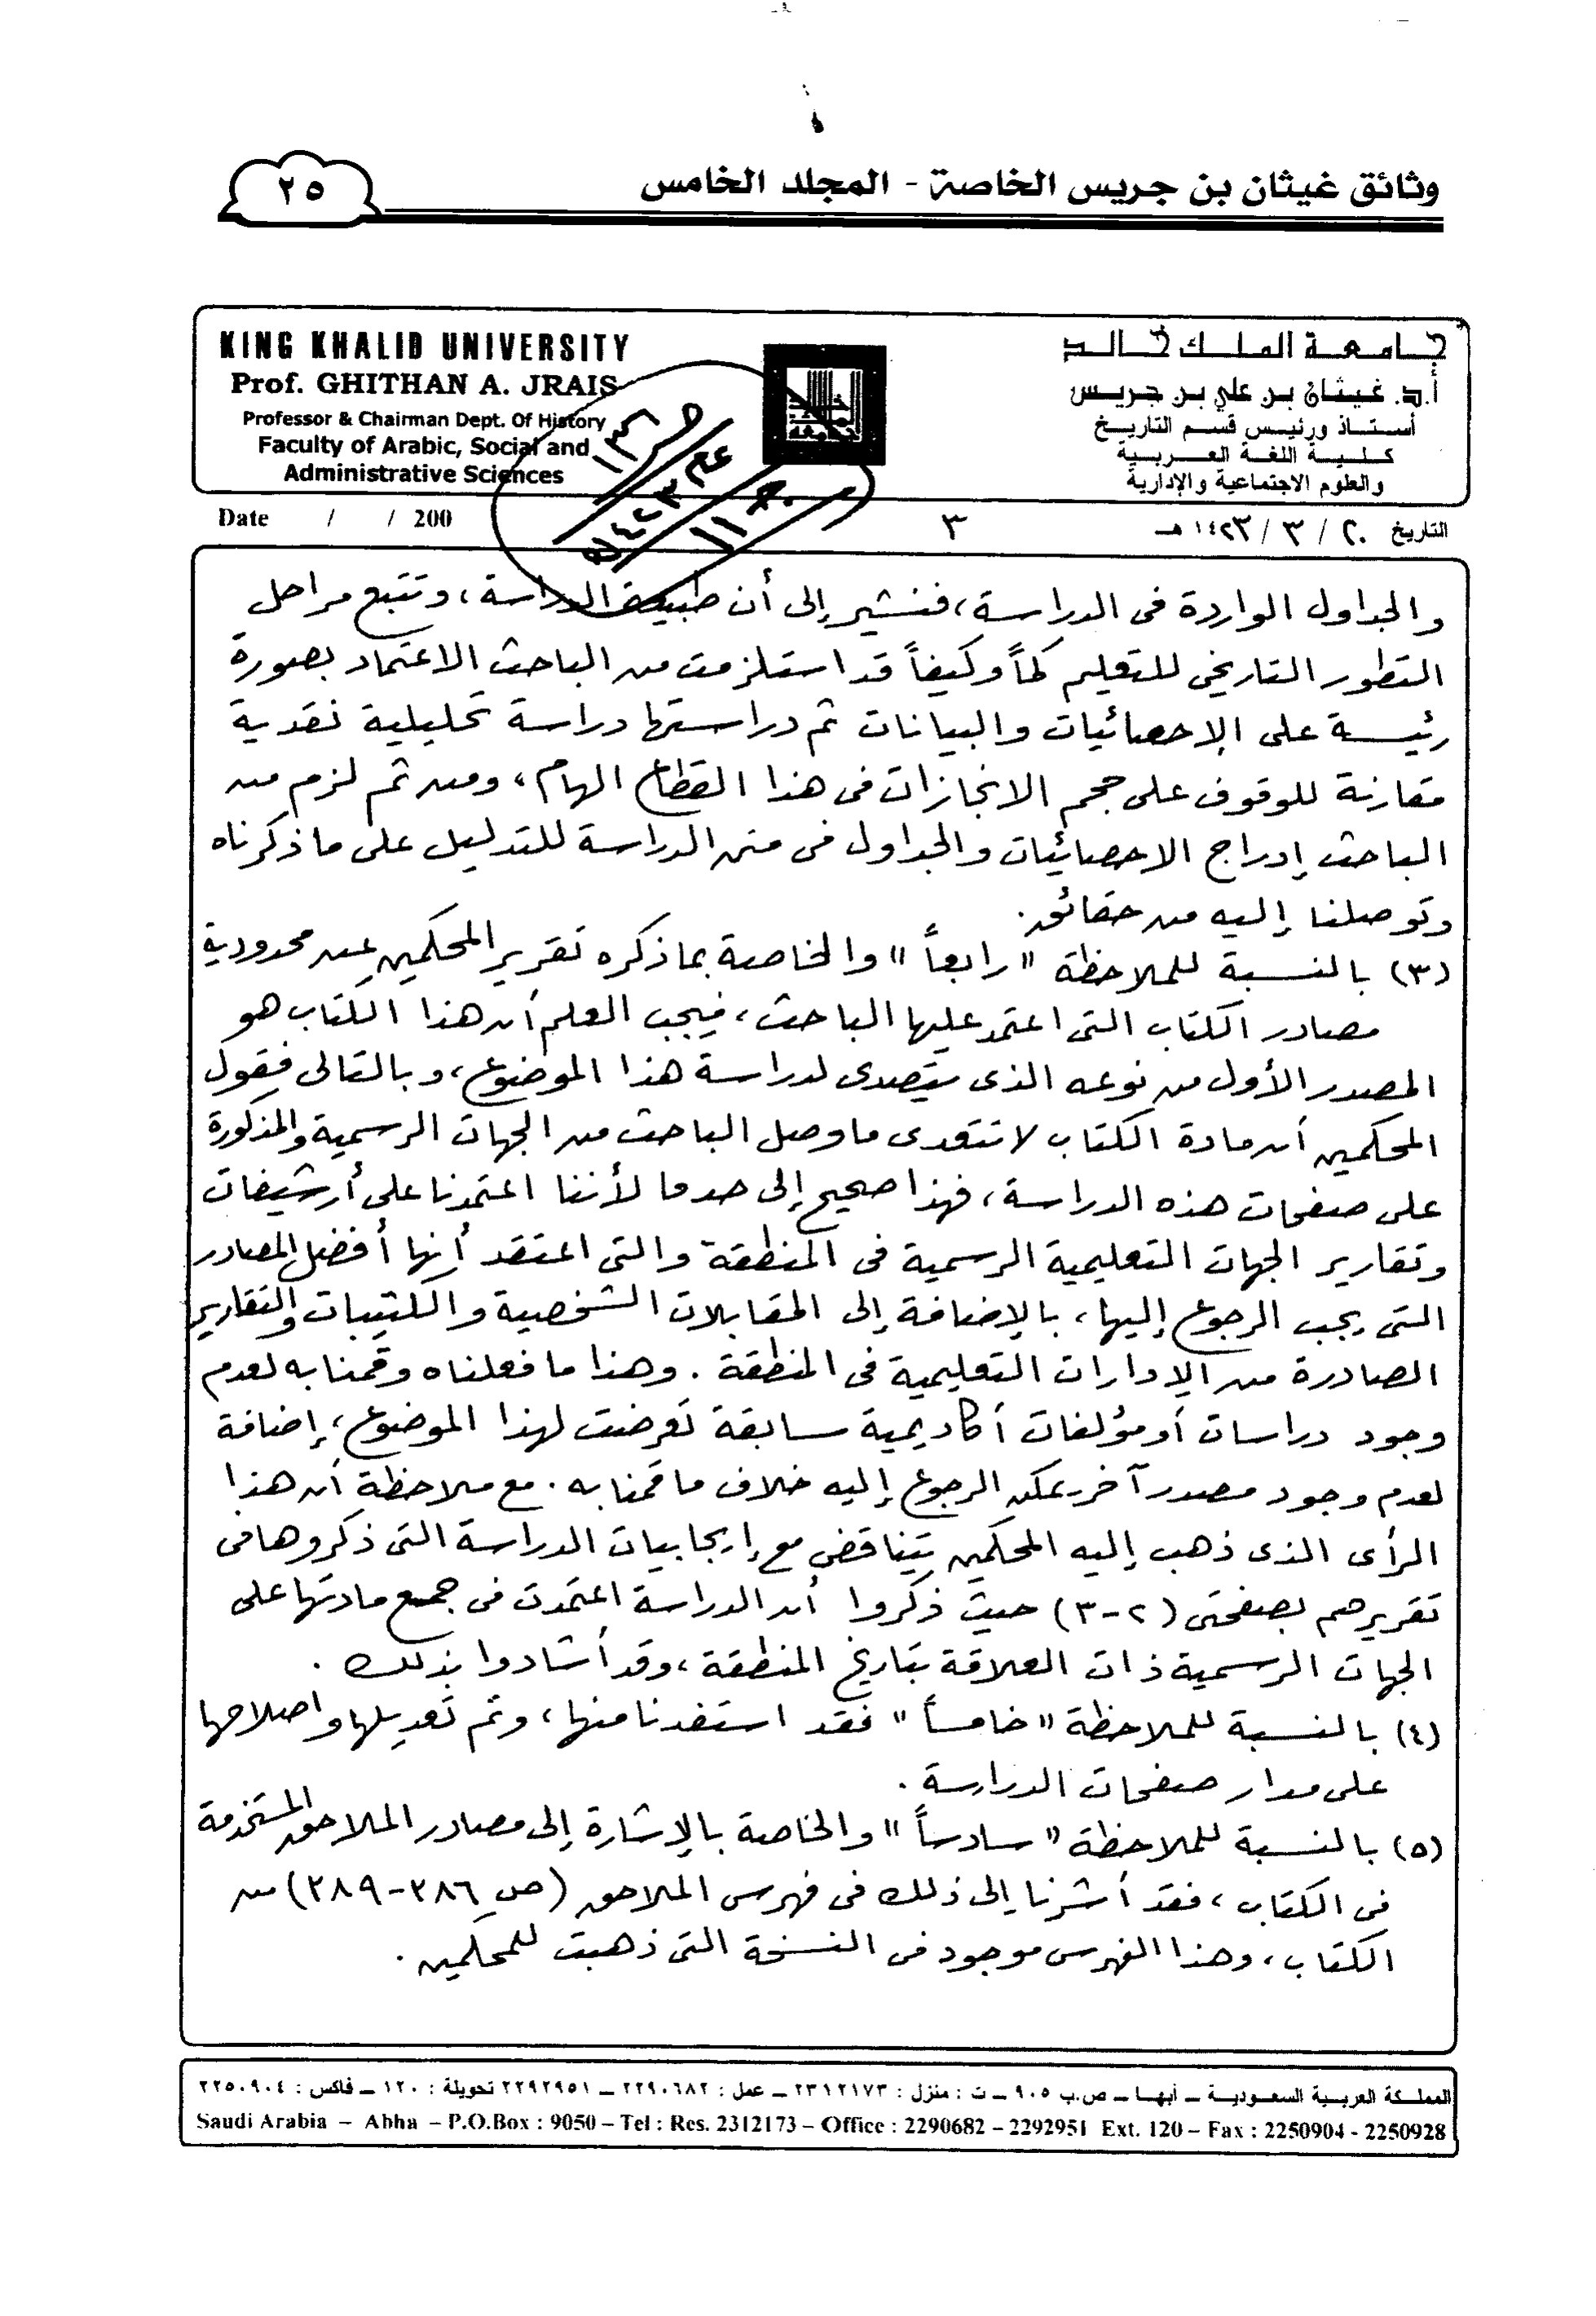 وثائق غيثان بن جريس الخاصة - المجلد الخامس
٢٥
KING KHALID UNIVERSITY
Prof. GHITHAN A. JRAIS
Professor & Chairman Dept. Of History
Faculty of Arabic, Social and
Administrative Sciences
جامعة الملك خالد
أ.د. غيثان بن علي بن جريس
أستاذ ورئيس قسم التاريخ
كلية اللغة العربية
والعلوم الاجتماعية والإدارية
Date / / 200
٣
التاريخ ٢٠ / ٣ / ١٤٢٣ هـ
والجداول الواردة فى الدراسة، فنشير إلى أن طبيعة الدراسة، وتتبع مراحل
التطور التاريخى للتعليم كماً وكيفاً قد استلزمت من الباحث الاعتماد بصورة
رئيسة على الإحصائيات والبيانات ثم دراستها دراسة تحليلية نقدية
مقارنة للوقوف على حجم الانجازات فى هذا القطاع الهام، ومن ثم لزم من
الباحث إدراج الاحصائيات والجداول فى متن الدراسة للتدليل على ما ذكرناه
وتوصلنا إليه من حقائق.
(٣) بالنسبة للملاحظة "رابعاً" والخاصة بما ذكره تقرير المحكمين عن محدودية
مصادر الكتاب التى اعتمد عليها الباحث، فيجب العلم أن هذا الكتاب هو
المصدر الأول من نوعه الذى يتصدى لدراسة هذا الموضوع، وبالتالى فقول
المحكمين أن مادة الكتاب لا تتعدى ما وصل الباحث من الجهات الرسمية والمذكورة
على صفحات هذه الدراسة، فهذا صحيح إلى حد ما لأننا اعتمدنا على أرشيفات
وتقارير الجهات التعليمية الرسمية فى المنطقة والتى اعتقد أنها أفضل المصادر
التى يجب الرجوع إليها، بالإضافة إلى المقابلات الشخصية والكتيبات والتقارير
الصادرة من الإدارات التعليمية فى المنطقة. وهذا ما فعلناه وقمنا به لعدم
وجود دراسات أو مؤلفات أكاديمية سابقة تعرضت لهذا الموضوع، إضافة
لعدم وجود مصدر آخر يمكن الرجوع إليه خلاف ما قمنا به. مع ملاحظة أن هذا
الرأى الذى ذهب إليه المحكمين يتناقض مع إيجابيات الدراسة التى ذكروها فى
تقريرهم بصفحتى (٢-٣) حيث ذكروا أن الدراسة اعتمدت فى جمع مادتها على
الجهات الرسمية ذات العلاقة بتاريخ المنطقة، وقد أشادوا بذلك.
(٤) بالنسبة للملاحظة "خامساً" فقد استفدنا منها، وتم تعديلها واصلاحها
على مدار صفحات الدراسة.
(٥) بالنسبة للملاحظة "سادساً" والخاصة بالإشارة إلى مصادر الملاحق المستخدمة
فى الكتاب، فقد أشرنا إلى ذلك فى فهرس الملاحق (ص ٣٨٦-٣٨٩) من
الكتاب، وهذا الفهرس موجود فى النسخة التى ذهبت للمحكمين.
المملكة العربية السعودية – أبها – ص.ب ٩٠٥ – ت : منزل : ٢٣١٢١٧٣ – عمل : ٢٢٩٠٦٨٢ – ٢٢٩٢٩٥١ تحويلة : ١٢٠ – فاكس : ٢٢٥٠٩٠٤
Saudi Arabia – Abha – P.O.Box : 9050 – Tel : Res. 2312173 – Office : 2290682 – 2292951 Ext. 120 – Fax : 2250904 - 2250928